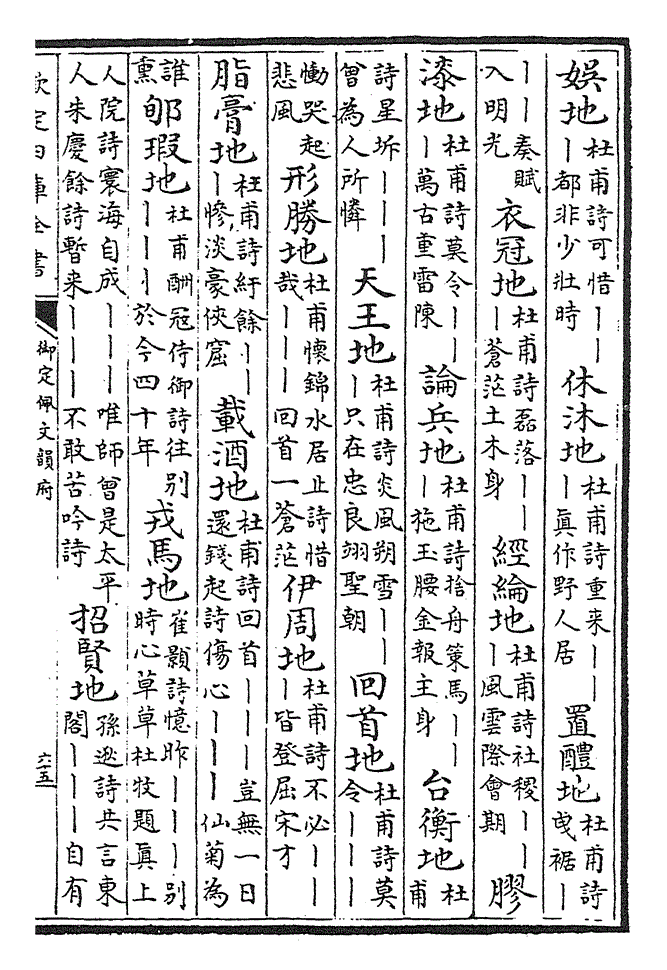 娛地杜甫詩可惜｜｜｜都非少壯時休沐地杜甫詩重来｜｜｜真作野人居置醴地杜甫詩曵裾｜
｜｜奏賦入明光衣冠地杜甫詩磊落｜｜｜蒼茫土木身經綸地杜甫詩社稷｜｜｜風雲際會期膠
漆地杜甫詩莫令｜｜｜萬古重雷陳論兵地杜甫詩捨舟策馬｜｜｜拖玉腰金報主身台衡地杜甫
詩星坼｜｜｜曾為人所憐天王地杜甫詩炎風朔雪｜｜｜只在忠良翊聖朝回首地杜甫詩莫令｜｜｜
慟哭起悲風形勝地杜甫懷錦水居止詩惜哉｜｜｜回首一蒼茫伊周地杜甫詩不必｜｜｜皆登屈宋才
脂膏地杜甫詩紆餘｜｜｜慘淡豪俠窟載酒地杜甫詩回首｜｜｜豈無一日還錢起詩傷心｜｜｜仙菊為
誰熏郇瑕地杜甫酬冦侍御詩往别｜｜｜於今四十年戎馬地崔顥詩憶昨｜｜｜别時心草草杜牧題真上
人院詩寰海自成｜｜｜唯師曾是太平人朱慶餘詩暫来｜｜｜不敢苦吟詩招賢地孫逖詩共言東閣｜｜｜自有
欽定四庫全書 御定佩文韻府 六十五